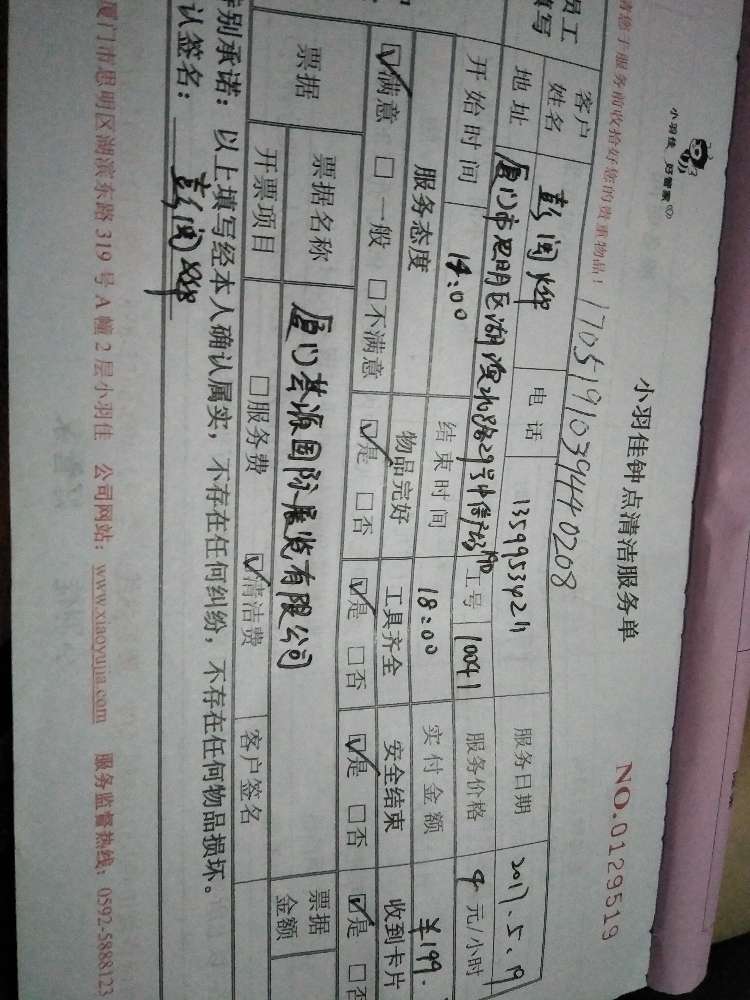 小羽佳 好管家
小羽佳钟点清洁服务单
NO.0129519
请您于服务前收拾好您的贵重物品！
170519103944 0208
员工
填写
客户
姓名
电话
13599534211
服务日期
2017.5.19
地址
工号
10041
服务价格
元/小时
开始时间
14:00
结束时间
18:00
实付金额
¥199.
服务态度
物品完好
工具齐全
安全结束
收到卡片
☑满意 □一般 □不满意
☑是 □否
☑是 □否
☑是 □否
☑是 □否
票据
票据名称
国际展览有限公司
票据
金额
开票项目
□服务费
☑清洁费
客户签名
特别承诺：以上填写经本人确认属实，不存在任何纠纷，不存在任何物品损坏。
认签名：
厦门市思明区湖滨东路319号A幢2层小羽佳 公司网站：www.xiaoyujia.com 服务监督热线：0592-5888123